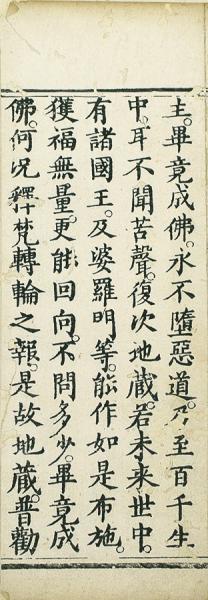 主。畢竟成佛。永不墮惡道。乃至百千生
中。耳不聞苦聲。復次地藏。若未來世中。
有諸國王。及婆羅門等。能作如是布施。
獲福無量。更能回向。不問多少。畢竟成
佛。何況釋梵轉輪之報。是故地藏。普勸